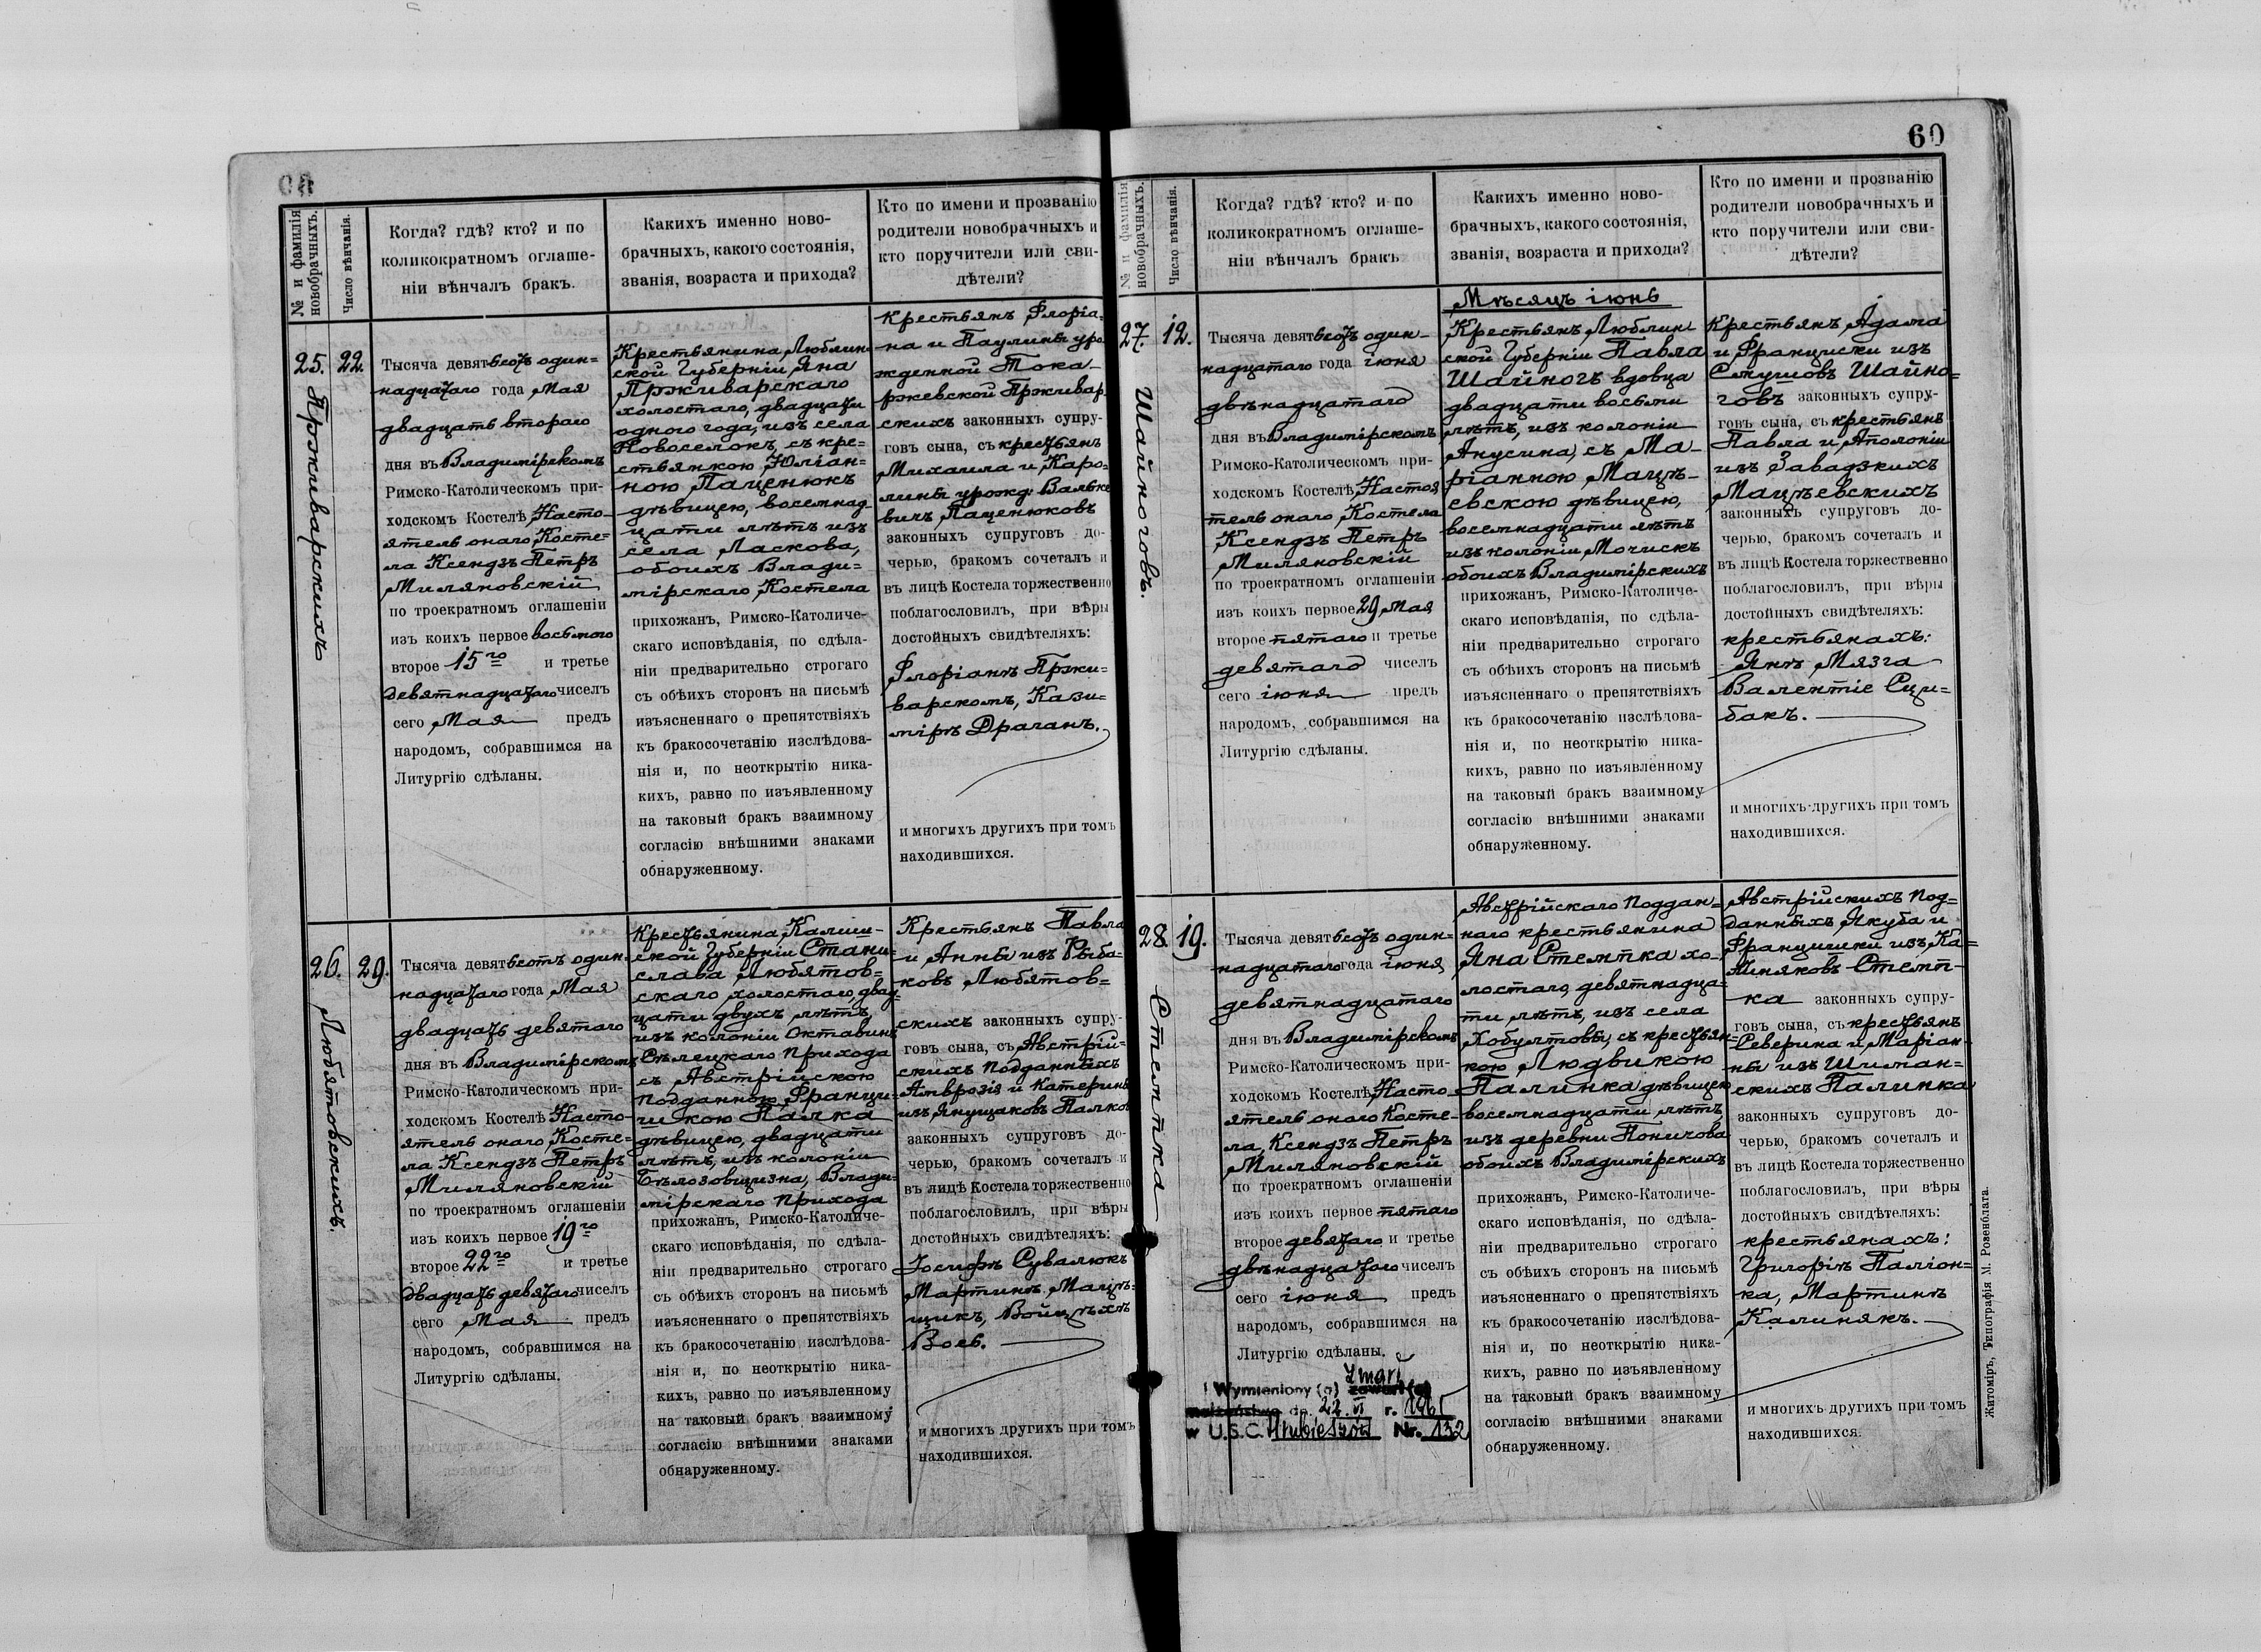 60
№ и фамилія новобрачныхъ.
Число вѣнчанія.
Когда? гдѣ? кто? и по
коликократномъ оглаше-
ніи вѣнчалъ бракъ.
Какихъ именно ново-
брачныхъ, какого состоянія,
званія, возраста и прихода?
Кто по имени и прозванію
родители новобрачныхъ и
кто поручители или сви-
дѣтели?
25.
Прживарскихъ
22.
Тысяча девятьсотъ один=
надцатаго года Мая
двадцать второго
дня въ Владимірскомъ
Римско-Католическомъ при-
ходскомъ Костелѣ, Насто-
ятель онаго Косте=
ла Ксендзъ Петръ
Миляновскій
по троекратномъ оглашеніи
изъ коихъ первое восьмого
второе 15го и третье
девятнадцатаго чиселъ
сего Мая предъ
народомъ, собравшимся на
Литургію сдѣланы.
Крестьянина Люблин-
ской Губерніи Яна
Прживарскаго
холостаго, двадцати
одного года, изъ села
Новоселокъ, съ кре=
стьянкою Юліан-
ною Паценюкъ
дѣвицею, восемнад-
цати лѣтъ изъ
села Ласкова,
обоихъ Влади=
мірскаго Костела
прихожанъ, Римско-Католиче-
скаго исповѣданія, по сдѣла-
ніи предварительно строгаго
съ обѣихъ сторонъ на письмѣ
изъясненнаго о препятствіяхъ
къ бракосочетанію изслѣдова-
нія и, по неоткрытію ника-
кихъ, равно по изъявленному
на таковый бракъ взаимному
согласію внѣшними знаками
обнаруженному.
крестьянъ Флоріа-
на и Паулины уро-
жденной Тока-
ржевской Прживар-
скихъ законныхъ супру-
говъ сына, съ крестьянъ
Михаила и Каро=
лины урожд. Вальке
вичъ Паценюковъ
законныхъ супруговъ до-
черью, бракомъ сочеталъ и
въ лицѣ Костела торжественно
поблагословилъ, при вѣры
достойныхъ свидѣтеляхъ:
Флоріанъ Пржи=
варскомъ, Кази=
міръ Драганъ.
и многихъ другихъ при томъ
находившихся.
26.
Любятовскихъ.
29.
Тысяча девятьсотъ один-
надцатаго года Мая
двадцать девятаго
дня въ Владимірскомъ
Римско-Католическомъ при-
ходскомъ Костелѣ Насто-
ятель онаго Косте=
ла Ксендзъ Петръ
Миляновскій
по троекратномъ оглашеніи
изъ коихъ первое 19го
второе 22го и третье
двадцать девятаго чиселъ
сего Мая предъ
народомъ, собравшимся на
Литургію сдѣланы.
Крестьянина Калиш-
ской Губерніи Стани-
слава Любятов=
скаго холостаго, двад-
цати двухъ лѣтъ,
изъ колоніи Октавинъ
Сѣлецкаго прихода
съ Австрійскою
подданною Франци-
шкою Палка
дѣвицею, двадцати
лѣтъ, изъ колоніи
Бѣлозовщизна, Влади-
мірскаго прихода
прихожанъ, Римско-Католиче-
скаго исповѣданія, по сдѣла-
ніи предварительно строгаго
съ обѣихъ сторонъ на письмѣ
изъясненнаго о препятствіяхъ
къ бракосочетанію изслѣдова-
нія и, по неоткрытію ника-
кихъ, равно по изъявленному
на таковый бракъ взаимному
согласію внѣшними знаками
обнаруженному.
Крестьянъ Павла
и Анны изъ Рыба=
ковъ Любятов=
скихъ законныхъ супру-
говъ сына, съ Австрій-
скихъ подданныхъ
Амврозія и Катерины
изъ Янущаковъ Палко
законныхъ супруговъ до-
черью, бракомъ сочеталъ и
въ лицѣ Костела торжественно
поблагословилъ, при вѣры
достойныхъ свидѣтеляхъ:
Іосифъ Сувалюкъ
Мартинъ Мацѣ-
щикъ, Войцѣхъ
Воев.
и многихъ другихъ при томъ
находившихся.
№ и фамилія новобрачныхъ.
Число вѣнчанія.
Когда? гдѣ? кто? и по
коликократномъ оглаше-
ніи вѣнчалъ бракъ
Какихъ именно ново-
брачныхъ, какого состоянія,
званія, возраста и прихода?
Кто по имени и прозванію
родители новобрачныхъ и
кто поручители или сви-
дѣтели?
Мѣсяцъ іюнь
27.
Шайноговъ.
12.
Тысяча девятьсотъ один-
надцатаго года іюня
двѣнадцатаго
дня въ Владимірскомъ
Римско-Католическомъ при-
ходскомъ Костелѣ, Настоя
тель онаго Костела
Ксендзъ Петръ
Миляновскій
по троекратномъ оглашеніи
изъ коихъ первое 29 Мая
второе пятаго и третье
девятаго чиселъ
сего іюня предъ
народомъ, собравшимся на
Литургію сдѣланы.
Крестьянъ Люблин
ской Губерніи Павла
Шайногъ вдовца
двадцати восьми
лѣтъ, изъ колоніи
Анусина, съ Ма-
ріанною Мацѣ-
евскою дѣвицею,
восемнадцати лѣтъ
изъ колоніи Мочискъ
обоихъ Владимірскихъ
прихожанъ, Римско-Католиче-
скаго исповѣданія, по сдѣла-
ніи предварительно строгаго
съ обѣихъ сторонъ на письмѣ
изъясненнаго о препятствіяхъ
къ бракосочетанію изслѣдова-
нія и, по неоткрытію ника-
кихъ, равно по изъявленному
на таковый бракъ взаимному
согласію внѣшними знаками
обнаруженному.
Крестьянъ, Адама
и Франциски изъ
Смушовъ Шайно=
говъ законныхъ супру-
говъ сына, съ крестьянъ
Павла и Аполоніи
изъ Завадзкихъ
Мацѣевскихъ
законныхъ супруговъ до-
черью, бракомъ сочеталъ и
въ лицѣ Костела торжественно
поблагословилъ, при вѣры
достойныхъ свидѣтеляхъ:
крестьянахъ:
Янъ Мязга
Валентіе Сци=
бакъ.
и многихъ другихъ при томъ
находившихся.
28.
Стемпка
19.
Тысяча девятьсотъ один=
надцатаго года іюня
девятнадцатаго
дня въ Владимірскомъ
Римско-Католическомъ при-
ходскомъ Костелѣ, Насто-
ятель онаго Косте-
ла, Ксендзъ Петръ
Миляновскій
по троекратномъ оглашеніи
изъ коихъ первое пятаго
второе девятаго и третье
двѣнадцатаго чиселъ
сего іюня предъ
народомъ, собравшимся на
Литургію сдѣланы.
zmarł
Wymieniony (a) zawarł(a)
małżeństwo dn. 22.VI r. 1965
w U.S.C. Hrubieszów Nr. 132
Австрійскаго поддан-
наго крестьянина
Яна Стемпка хо-
лостаго, девятнадца-
ти лѣтъ, изъ села
Хобултовы, съ крестьян-
кою Людвикою
Палинка дѣвицею
восемнадцати лѣтъ,
изъ деревни Поничова
обоихъ Владимірскихъ
прихожанъ, Римско-Католиче-
скаго исповѣданія, по сдѣла-
ніи предварительно строгаго
съ обѣихъ сторонъ на письмѣ
изъясненнаго о препятствіяхъ
къ бракосочетанію изслѣдова-
нія и, по неоткрытію ника-
кихъ, равно по изъявленному
на таковый бракъ взаимному
согласію внѣшними знаками
обнаруженному.
Австрійскихъ под=
данныхъ Якуба и
Францишки изъ Ка=
линяковъ Стемп-
ка законныхъ супру-
говъ сына, съ крестьянъ
Северина и Маріан-
ны изъ Шиман=
скихъ Палинка
законныхъ супруговъ до-
черью, бракомъ сочеталъ и
въ лицѣ Костела торжественно
поблагословилъ, при вѣры
достойныхъ свидѣтеляхъ:
крестьянахъ:
Григорій Паліон=
ка, Мартинъ
Калинякъ.
и многихъ другихъ при томъ
находившихся.
Житоміръ, Типографія М. Розенблата.